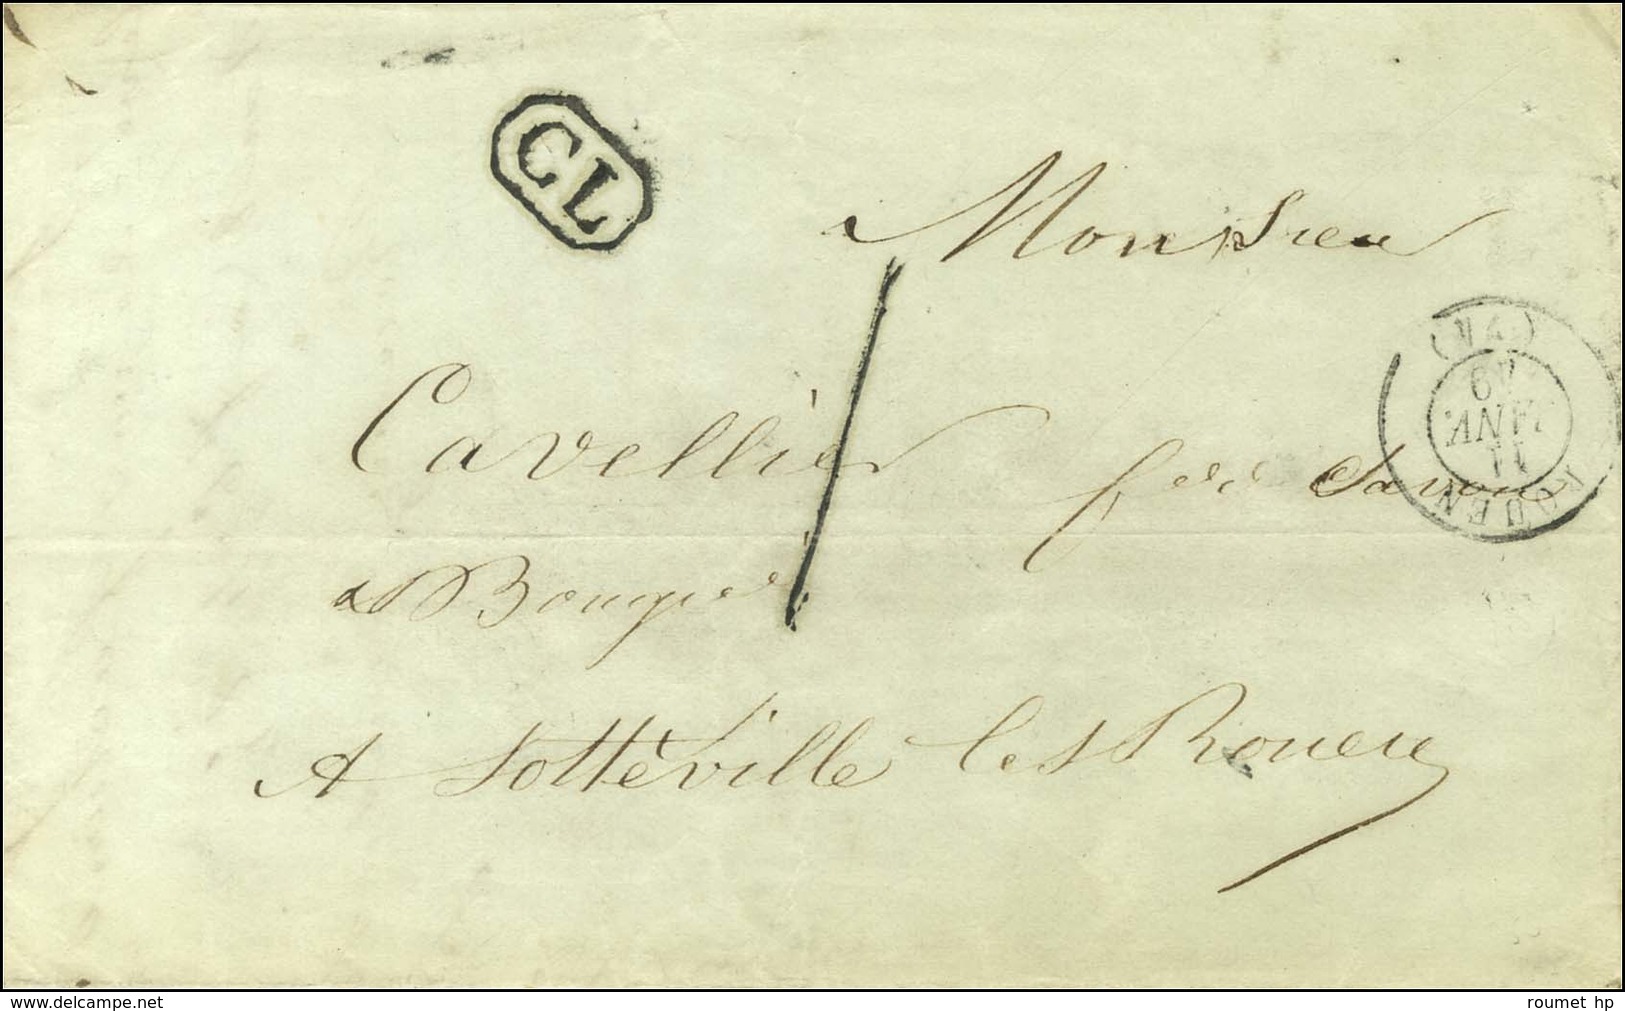 CL
a Monsieur
Cavellier fque de Savon
& Bougie
A Sotteville les Rouen
ROUEN
11
JANV.
49
(74)
www.delcampe.net
roumet hp